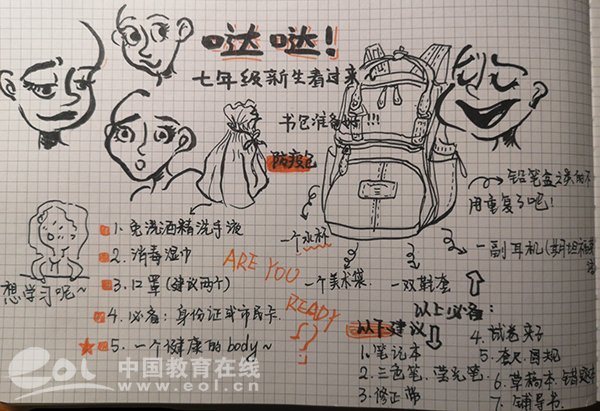 哒哒!
七年级新生看过来
书包准备好!!!
防疫包
铅笔盒之类的不
用重复了吧!
1. 免洗酒精洗手液
2. 消毒湿巾
3. 口罩(建议两个)
4. 必备:身份证或市民卡
5. 一个健康的body~
想学习呢~
ARE YOU
READY
?
一个水杯
一个美术袋
一双鞋套
一副耳机
以上必备:
以下建议
1. 笔记本
2. 三色笔、荧光笔
3. 修正带
4. 试卷夹子
5. 直尺、圆规
6. 草稿本、错题本
7. 辅导书
eol 中国教育在线
www.eol.cn